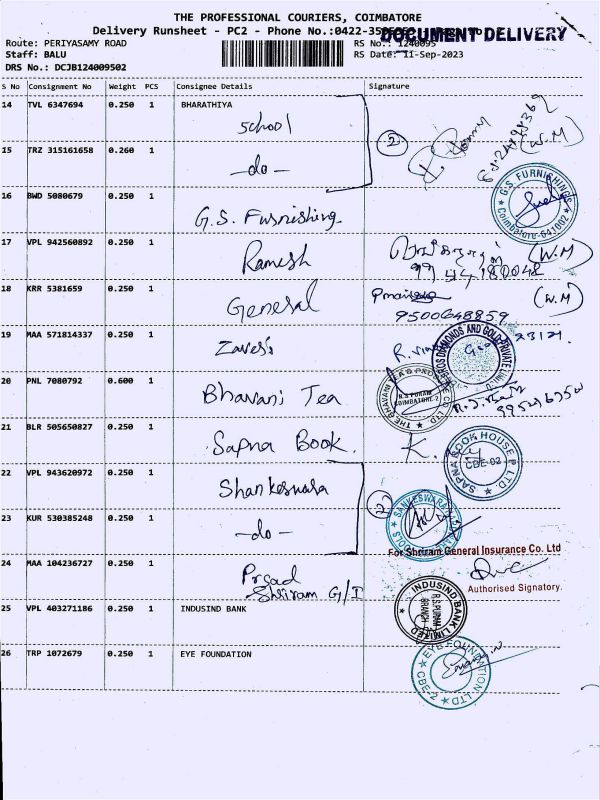 THE PROFESSIONAL COURIERS, COIMBATORE
Delivery Runsheet - PC2 - Phone No.:0422-35
DOCUMENT DELIVERY
Route: PERIYASAMY ROAD
RS No.: 1240095
Staff: BALU
RS Date: 11-Sep-2023
DRS No.: DCJB124009502
S No Consignment No Weight PCS Consignee Details Signature
14 TVL 6347694 0.250 1 BHARATHIYA
School
15 TRZ 315161658 0.260 1
-do-
2
(W.M)
16 BWD 5080679 0.250 1
G.S. Furnishing
G.S. FURNISHINGS
Coimbatore-641002
17 VPL 942560892 0.250 1
Ramesh
(W.M)
9944180048
18 KRR 5381659 0.250 1
General
9500648859
(W.M)
19 MAA 571814337 0.250 1
Zaveri's
20 PNL 7080792 0.600 1
Bhavani Tea
R.S PURAM
COIMBATORE-2
21 BLR 505650827 0.250 1
Sapna Book
SAPNA BOOK HOUSE P. LTD
CBE-02
22 VPL 943620972 0.250 1
Shankeswara
23 KUR 530385248 0.250 1
-do-
2
For Shriram General Insurance Co. Ltd
24 MAA 104236727 0.250 1
Prsad
Shriram G/I
Authorised Signatory.
25 VPL 403271186 0.250 1 INDUSIND BANK
INDUSIND BANK LIMITED
R.S.PURAM
BRANCH
26 TRP 1072679 0.250 1 EYE FOUNDATION
EYE FOUNDATION LTD
CBE-2